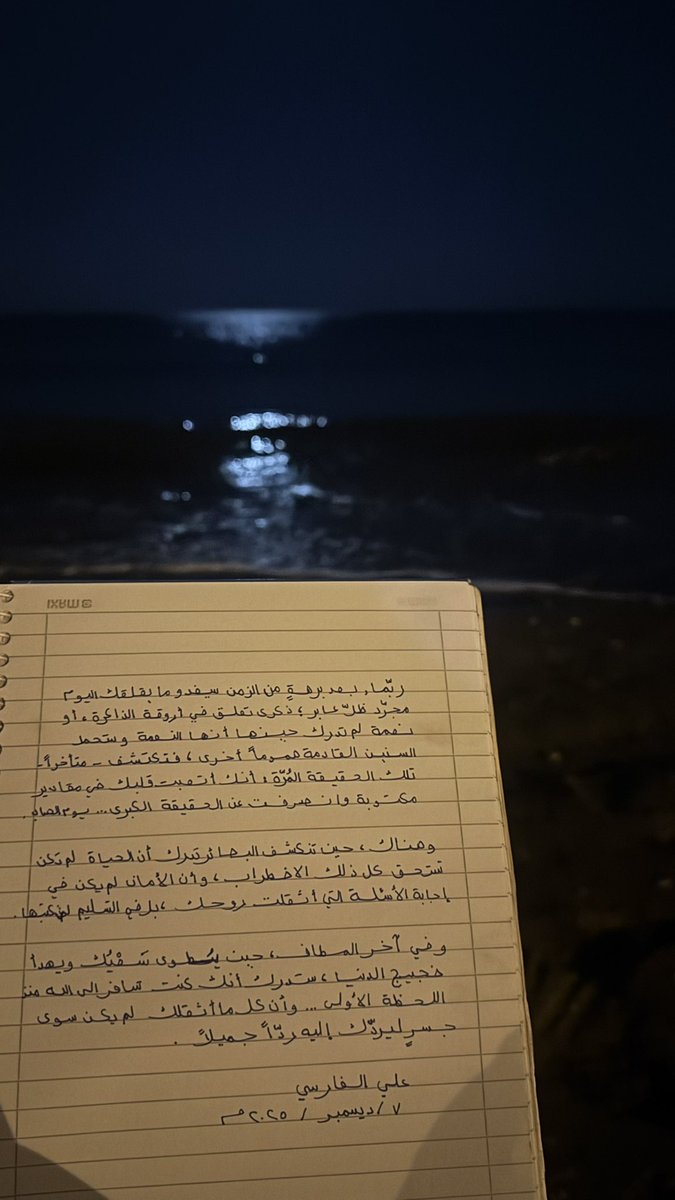 MAXI
ربّما، بعد برهةٍ من الزمن سيغدو ما يقلقك اليوم
مجرّد ظلّ عابر؛ ذكرى تعلق في أروقة الذاكرة، أو
نغمة لم تدرك حينها أنها النعمة وستحمل
السنين القادمة هموماً أخرى، فتكتشف - متأخراً -
تلك الحقيقة المُرّة، أنك أتعبت قلبك في مقادير
مكتوبة وانصرفت عن الحقيقة الكبرى... يوم المعاد.
وهناك، حين تنكشف البصائر تدرك أن الحياة لم تكن
تستحق كل ذلك الاضطراب، وأن الأمان لم يكن في
إجابة الأسئلة التي أثقلت روحك، بل في التسليم لمن كتبها.
وفي آخر المطاف، حين يُطوى سَعْيُك ويهدأ
ضجيج الدنيا، ستدرك أنك كنت تسافر إلى الله منذ
اللحظة الأولى... وأن كل ما أثقلك لم يكن سوى
جسرٍ ليردّك إليه ردّاً جميلاً.
علي الفارسي
٧ / ديسمبر / ٢٠٢٥م